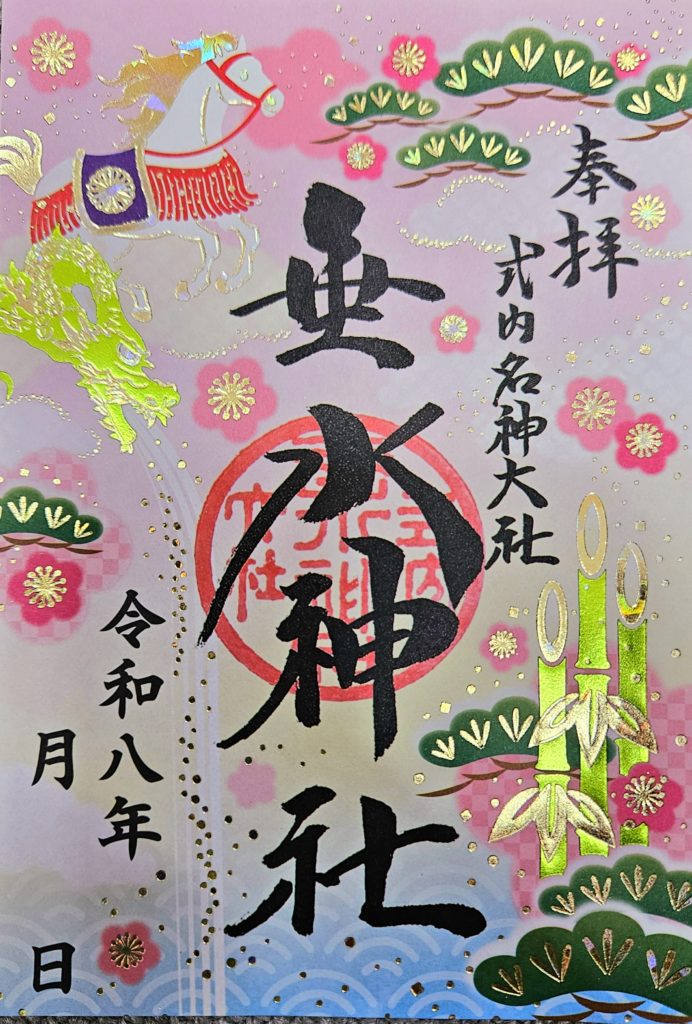 奉拝
式内名神大社
垂水神社
令和八年
月
日